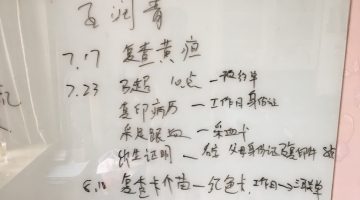 润青
7.17 复查黄疸
7.23 B超 10点 一
复印病历 — 工作日 身份证
采足跟血 — 采血卡
出生证明 — 名字 父母身份证 复印件
8.18 复查卡介苗 — 红色卡 工作日 → 三联单